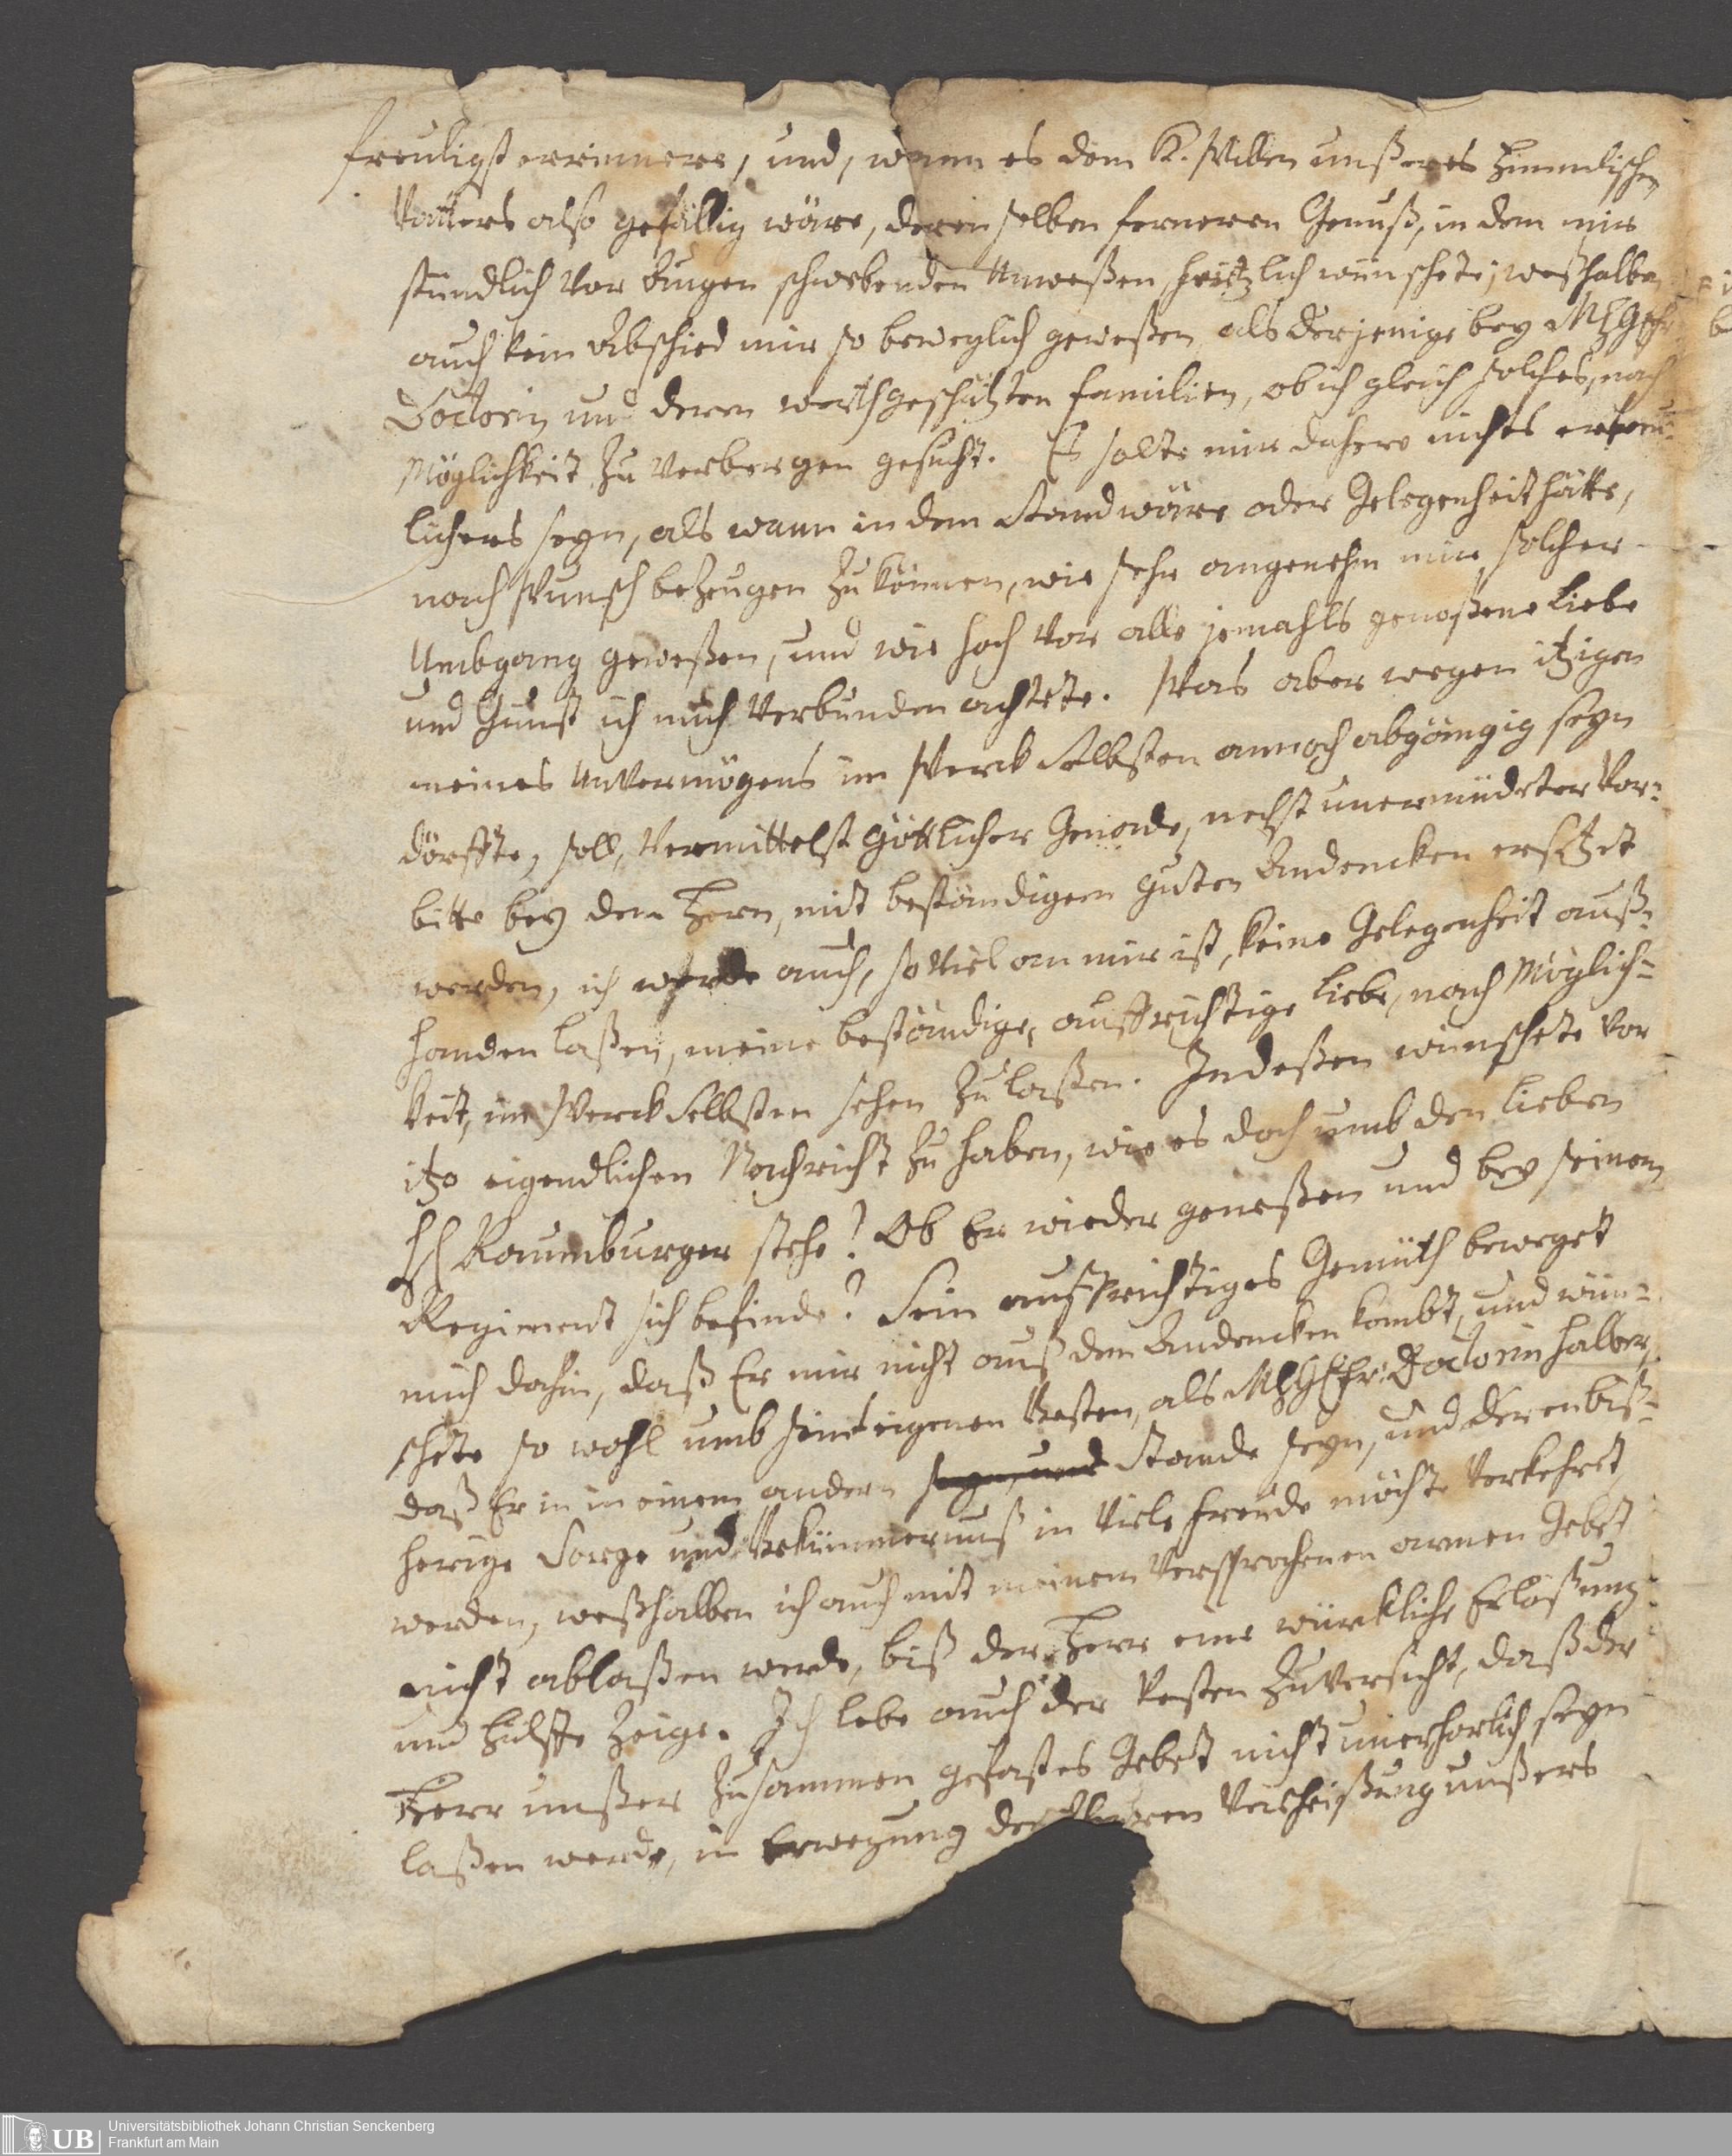 freuligst erinnere, und, wenn es dem H. Willen unßeres Himmlischen
Vatters also gefällig wäre, deren selben ferneren Genuß, in dem mir
stündlich vor Augen schwebenden Anweßen, hertzlich wünschete; weßhalben
auch kein Abschied mir so beweglich geweßen als derjenige bey MhgEfr
Doctorin und deren werthgeschätzten Familien, ob ich gleich solches, nach
Möglichkeit zu verbergen gesucht. Es solte mir dahero nichts erfreu-
lichers seyn, als wann in dem Stand wäre oder Gelegenheit hätte,
nach Wunsch bezeugen zu können, wie sehr angenehm mir solcher
Umbgang geweßen, und wie hoch vor alle jemahls genoßene Liebe
und Gunst ich mich verbunden achtete. Was aber wegen itzigen
meines Unvermögens im Werck Selbsten annoch abgängig seyn
dörffte, soll, vermittelst Göttlicher Genade, nechst unermüdeter Vor-
bitte bey dem Herrn, mit beständigem guten Andencken ersetzet
werden, ich werde auch, so viel an mir ist, keine Gelegenheit auß-
handen laßen, meine beständige, auffrichtige Liebe, nach Möglich-
keit, im Werck Selbsten sehen zu laßen. Indeßen wünschete vor
itzo eigendlichen Nachricht zu haben, wie es doch umb den lieben
H Raumburger stehe? Ob Er wieder geneßen und bey seinem
Regiment sich befinde? Sein auffrichtiges Gemüth beweget
mich dahin, daß Er mir nicht auß dem Andencken kombt, und wün-
schete so wohl umb seines eigenen Besten, als MhgEfr. Doctorin halber,
daß Er in in einem andern seyn, und Stande seyn, und deren biß-
herige Sorge und Bekümmernuß in viele Freude möchte verkehret
werden, weßhalben ich auch mit meinem versprochenen armen Gebet
nicht ablaßen werde, biß der Herr eine würckliche Erlößung
und Hülffe zeige. Ich lebe auch der vesten Zuversicht, daß der
Herr unßer zusammen gefastes Gebet nicht unerhörlich seyn
laßen werde, in Erwegung der Verheißung unßers
Universitätsbibliothek Johann Christian Senckenberg
Frankfurt am Main
UB